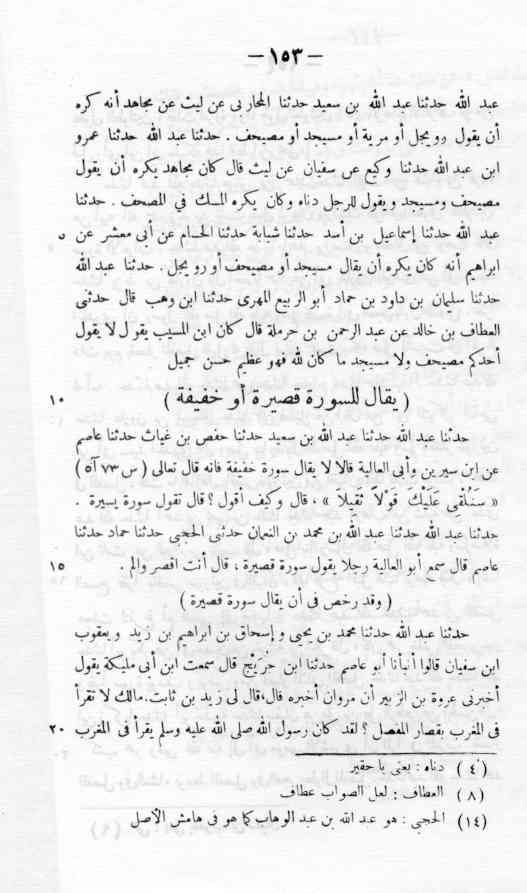 — ١٥٣ —
عبد الله حدثنا عبد الله بن سعيد حدثنا المحاربى عن ليث عن مجاهد أنه كره
أن يقول رويجل أو مرية أو مسيجد أو مصيحف . حدثنا عبد الله حدثنا عمرو
ابن عبد الله حدثنا وكيع عن سفيان عن ليث قال كان مجاهد يكره أن يقول
مصيحف ومسيجد ويقول للرجل دناه وكان يكره المسك في المصحف . حدثنا
عبد الله حدثنا إسماعيل بن أسد حدثنا شبابة حدثنا الحسام عن أبى معشر عن ٥
ابراهيم أنه كان يكره أن يقال مسيجد أو مصيحف أو رويجل . حدثنا عبد الله
حدثنا سليمان بن داود بن حماد أبو الربيع المهرى حدثنا ابن وهب قال حدثنى
العطاف بن خالد عن عبد الرحمن بن حرملة قال كان ابن المسيب يقول لا يقول
أحدكم مصيحف ولا مسيجد ما كان لله فهو عظيم حسن جميل
( يقال للسورة قصيرة أو خفيفة ) ١٠
حدثنا عبد الله حدثنا عبد الله بن سعيد حدثنا حفص بن غياث حدثنا عاصم
عن ابن سيرين وأبى العالية قالا لا يقال سورة خفيفة فانه قال تعالى ( س ٧٣ آ ٥ )
« سَنُلْقِى عَلَيْكَ قَوْلاً ثَقِيلاً » ، قال وكيف أقول ؟ قال تقول سورة يسيرة .
حدثنا عبد الله حدثنا عبد الله بن محمد بن النعمان حدثنى الحجبى حدثنا حماد حدثنا
عاصم قال سمع أبو العالية رجلا يقول سورة قصيرة ، قال أنت اقصر والم . ١٥
( وقد رخص فى أن يقال سورة قصيرة )
حدثنا عبد الله حدثنا محمد بن يحيى وإسحاق بن ابراهيم بن زيد ويعقوب
ابن سفيان قالوا أنبأنا أبو عاصم حدثنا ابن جُرَيْج قال سمعت ابن أبى مليكة يقول
أخبرنى عروة بن الزبير أن مروان أخبره قال، قال لى زيد بن ثابت. مالك لا تقرأ
فى المغرب بقصار المفصل ؟ لقد كان رسول الله صلى الله عليه وسلم يقرأ فى المغرب ٢٠
( ٤ ) دناه : يعنى يا حقير
( ٨ ) العطاف : لعل الصواب عطاف
( ١٤ ) الحجبى : هو عبد الله بن عبد الوهاب كما هو فى هامش الأصل